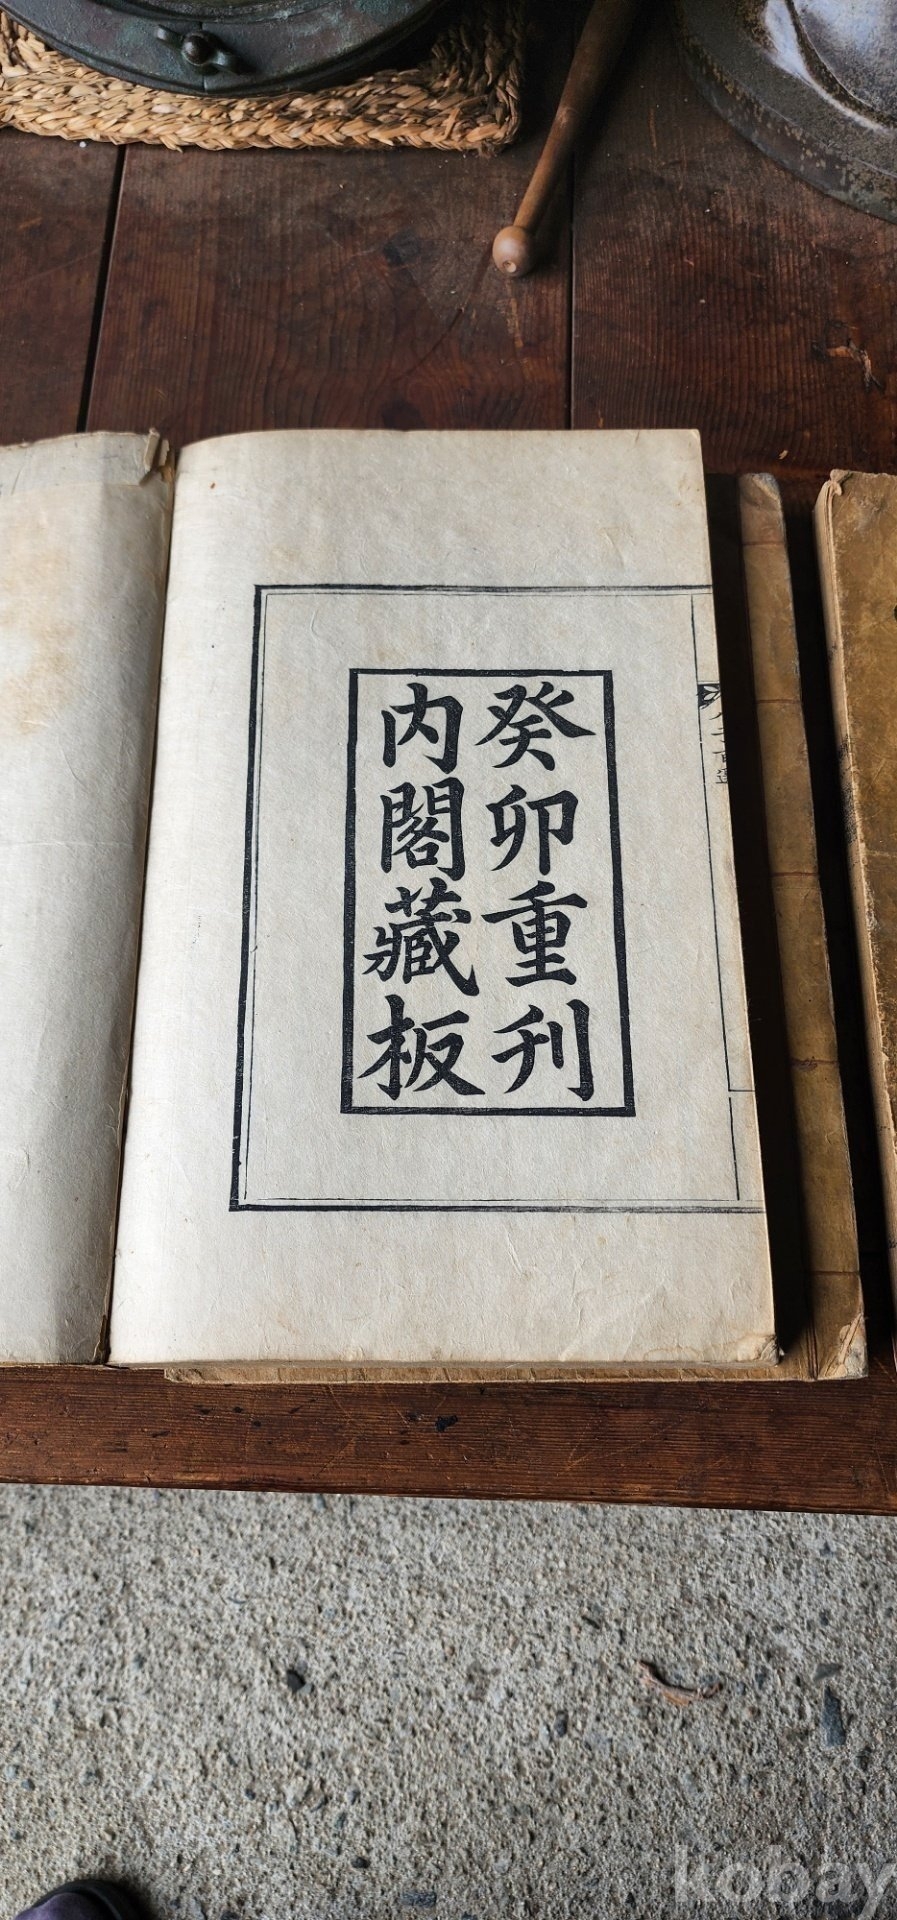 癸卯重刋
內閣藏板
kobay